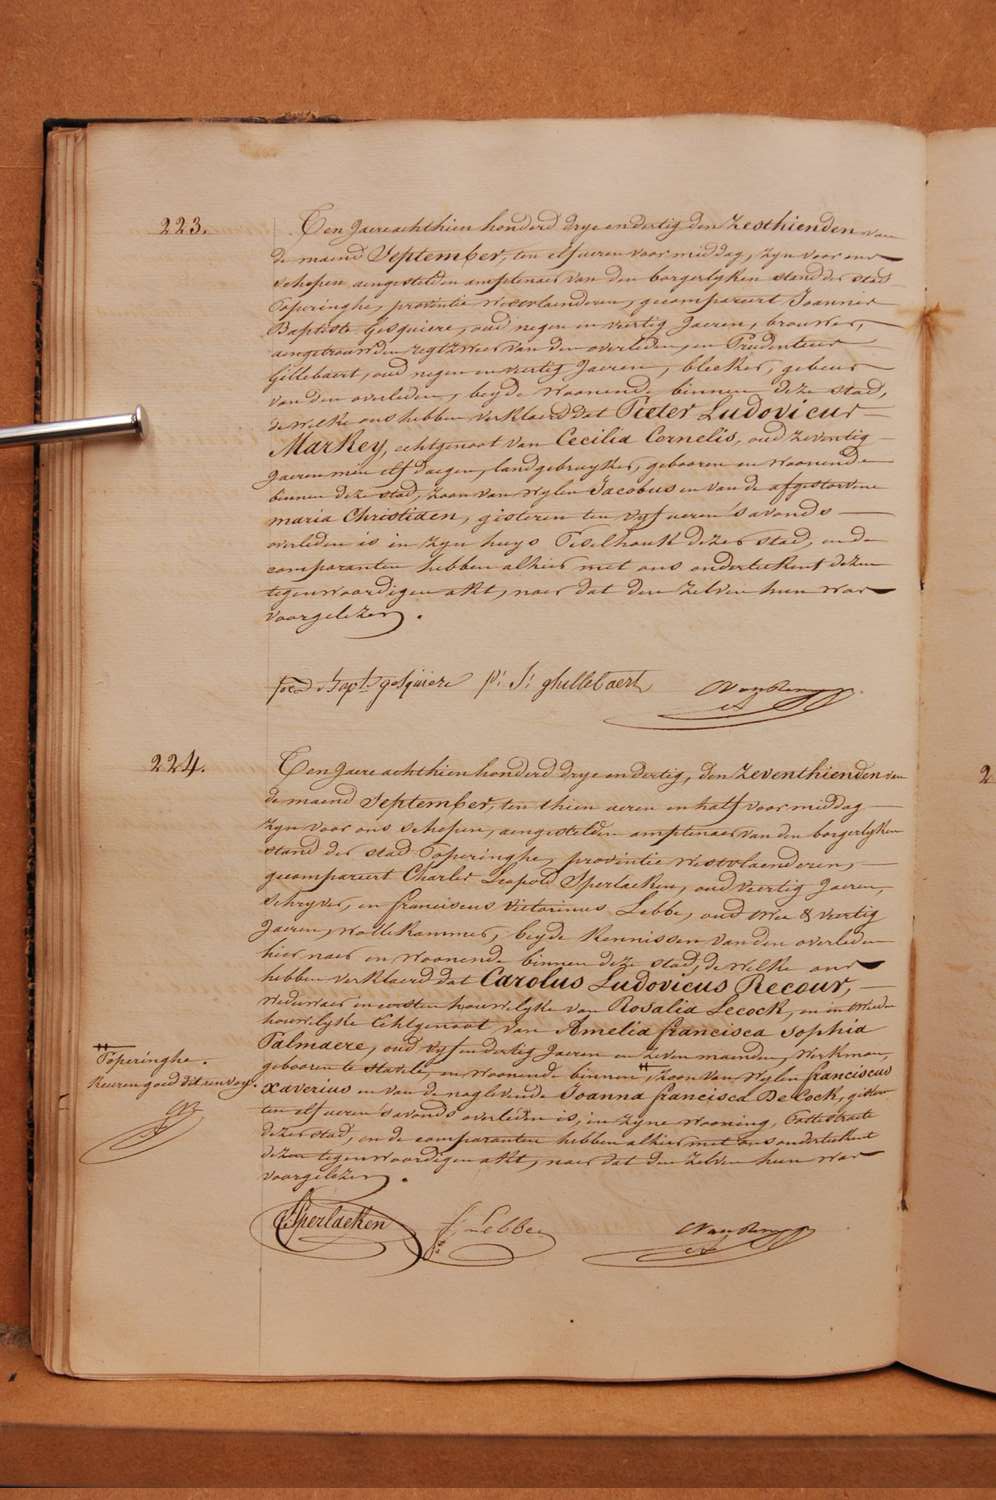 223.
Ten Jaere achthien honderd drye en dertig den Zesthienden van
de maend September, ten elf ueren voor middag, zyn voor ons
schepen aengestelden amptenaer van den borgerlyken stand der stad
Poperinghe, provintie Westvlaenderen, gecompareert Joannes
Baptiste Gesquiere, oud negen en viertig Jaeren, brouwer,
aengetrouwden regtzweer van den overleden, en Prudentius
Gillebaert, oud negen en viertig Jaeren, bleeker, gebeur
van den overleden, beyde woonende binnen deze stad,
de welke ons hebben verklaerd dat Pieter Ludovicus
Markey, echtgenoot van Cecilia Cornelis, oud zeventig
Jaeren min elf daegen, landgebruyker, gebooren en woonende
binnen deze stad, zoon van wylen Jacobus en van de afgestorvene
maria Christiaen, gisteren ten vyf ueren 's avonds
overleden is in zyn huys Peselhoek dezer stad, en de
comparanten hebben alhier met ons onderteekent dezen
tegenwoordigen akt, naer dat den zelven hun was
voorgelezen.
Bapt. gesquiere p. J. ghillebaert
224.
Ten Jaere achthien honderd drye en dertig, den Zeventhienden van
de maend September, ten thien ueren en half voor middag
zyn voor ons schepen, aengestelden amptenaer van den borgerlyken
stand der stad Poperinghe, provintie Westvlaenderen,
gecompareert Charles Leopold Sperlaeken, oud viertig Jaeren,
schryver, en franciscus victorinus Lebbe, oud twee & viertig
Jaeren, wollekammer, beyde kennissen van den overleden
hier naer en woonende binnen deze stad, de welke ons
hebben verklaerd dat Carolus Ludovicus Recour,
weduwaer in eersten houwelyke van Rosalia Lecock, en in tweeden
houwelyke Echtgenoot van Amelia francisca Sophia
Palmaere, oud vyf en dertig Jaeren en zeven maenden, werkman,
gebooren te stavele, en woonende binnen #, zoon van wylen franciscus
xaverius en van de naglevende Joanna francisca De Cock, gisteren
ten elf ueren s'avonds overleden is, in zyne wooning, Pottestraete
dezer stad, en de comparanten hebben alhier met ons onderteekent
dezen tegenwoordigen akt, naer dat den zelven hun was
voorgelezen.
# Poperinghe.
keuren goed dit renvoy.
Sperlaeken f. Lebbe
2